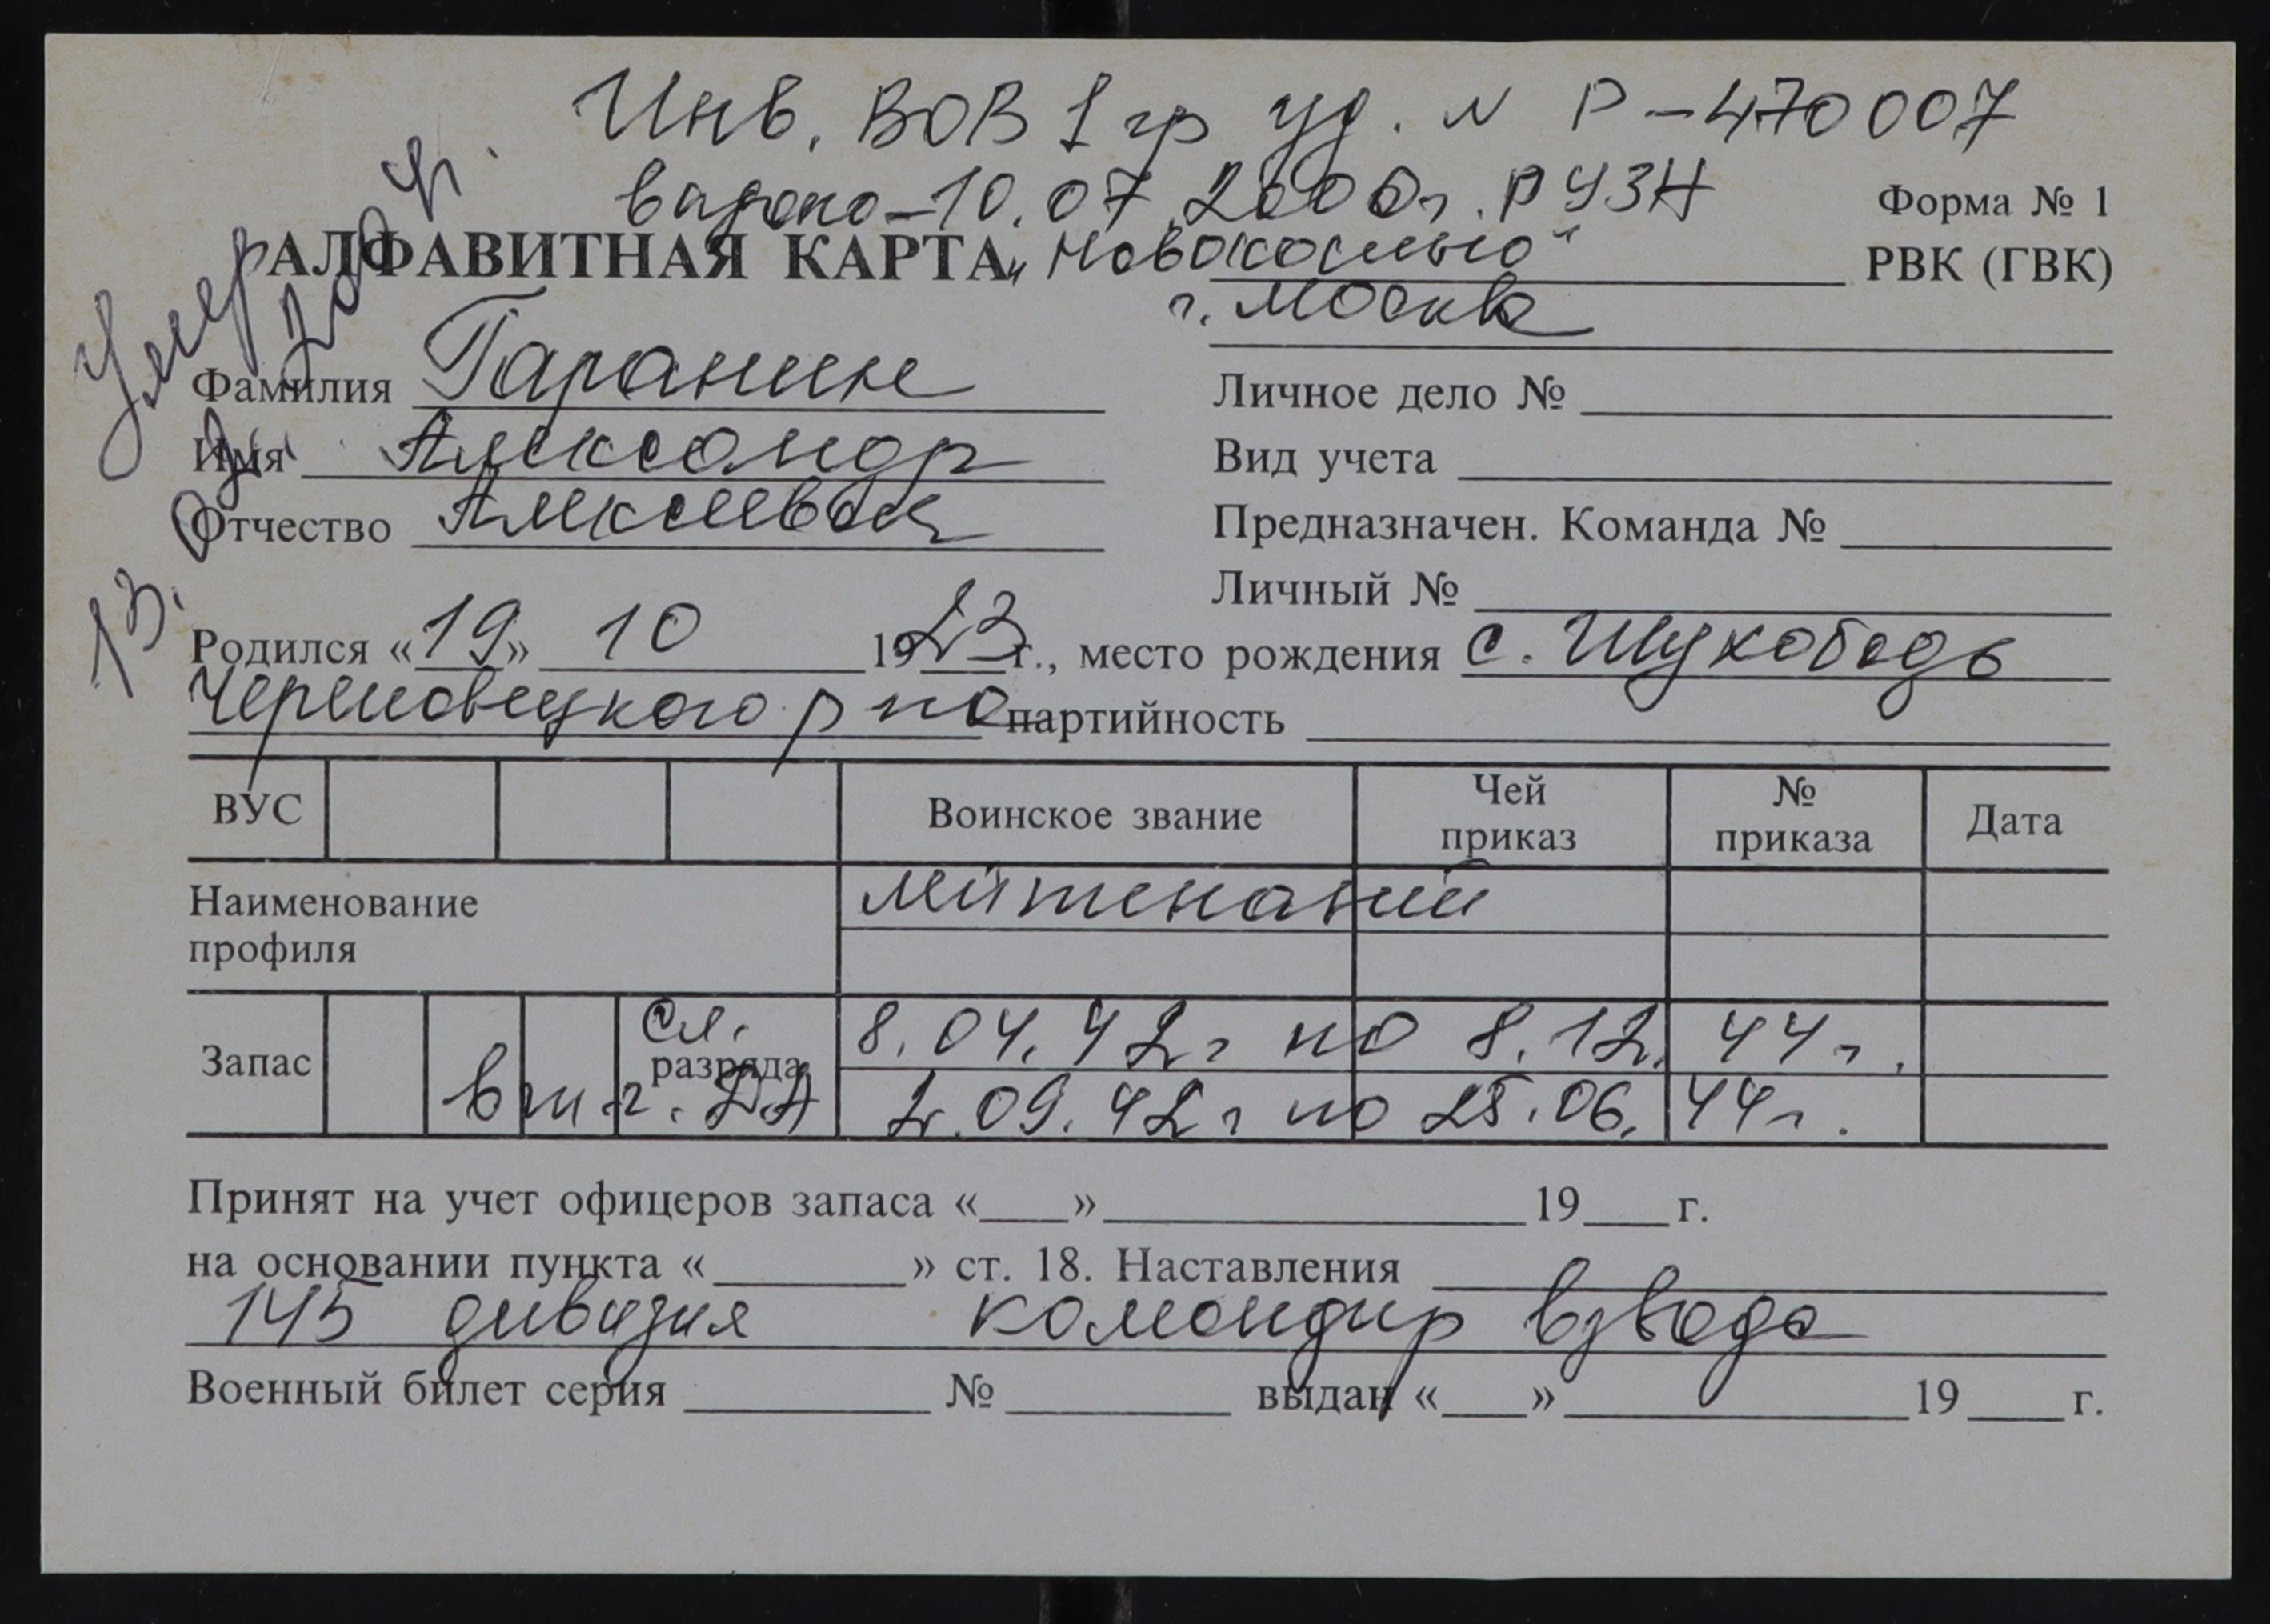 Инв. ВОВ 1 гр уд. N Р-470007
выдано - 10.07.2000г. РУЗН
Форма № 1
АЛФАВИТНАЯ КАРТА
"Новокосино"
РВК (ГВК)
г. Москва
Умер
13. 02. 2004 г.
Фамилия Гаранин
Имя Александр
Отчество Алексеевич
Личное дело №
Вид учета
Предназначен. Команда №
Личный №
Родился «19» 10 1923 г., место рождения с.
Череповецкого р на партийность
ВУС Воинское звание Чей приказ № приказа Дата
Наименование профиля
лейтенант
Запас разряда
8.04.42г по 8.12.44г.
в г. ДА 2.09.42г по 25.06.44г.
Принят на учет офицеров запаса «___» 19___г.
на основании пункта «___» ст. 18. Наставления
145 дивизия командир взвода
Военный билет серия № выдан «___» 19___г.